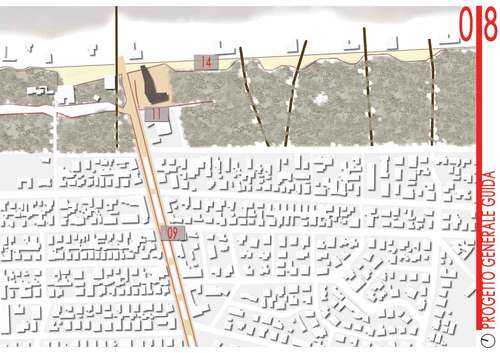 0 8
14
11
09
PROGETTO GENERALE GUIDA